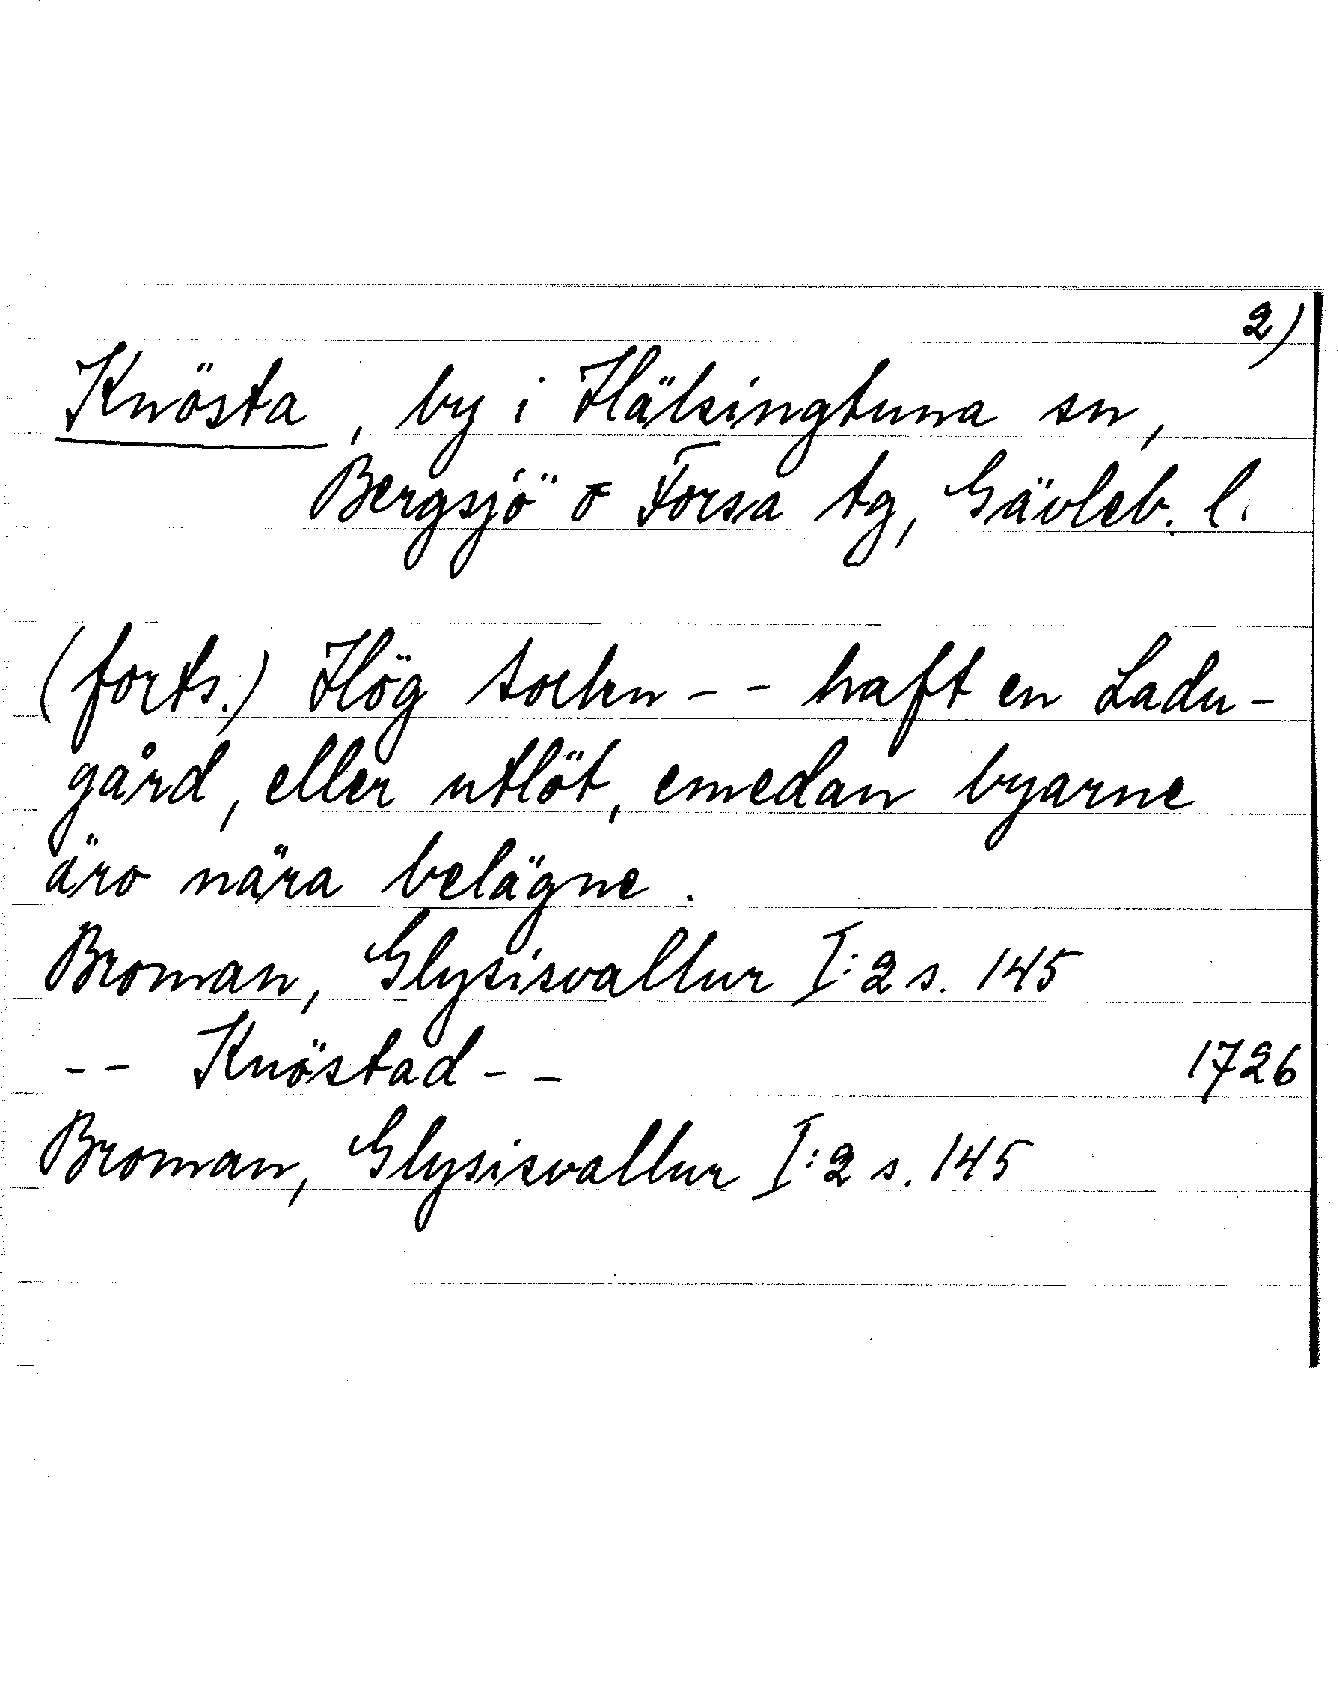 2)
Knösta, by i Hälsingtuna sn,
Bergsjö o Forsa tg, Gävleb. l.
(forts.) Hög sochn -- haft en Ladu-
gård, eller utlöt, emedan byarne
äro nära belägne.
Broman, Glysisvallur I:2 s. 145
-- Knöstad -- 1726
Broman, Glysisvallur I:2 s. 145